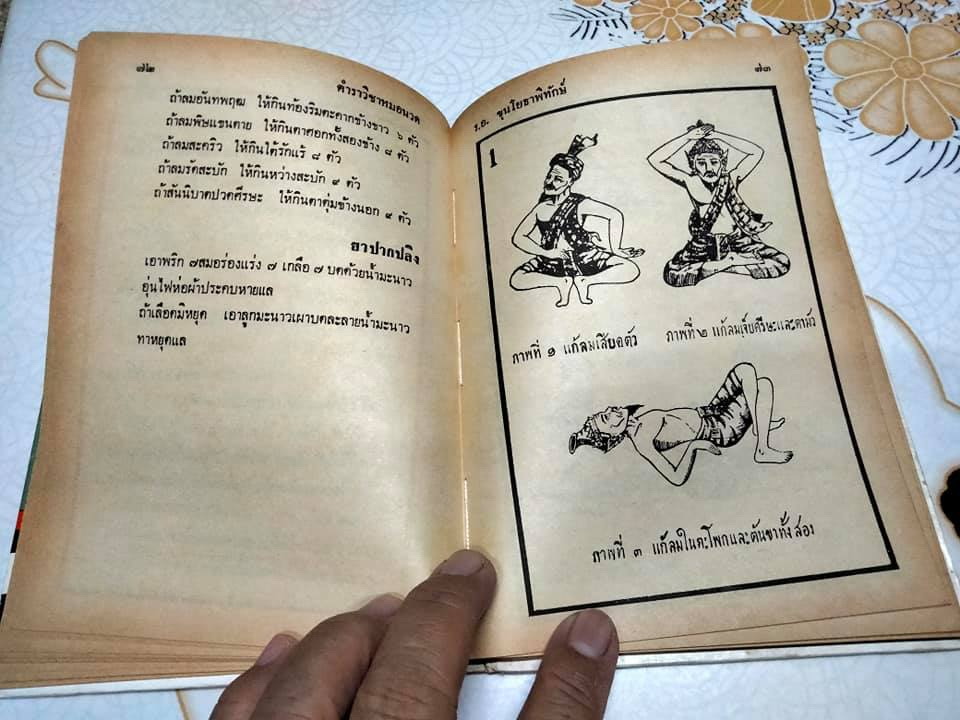 ๗๒
ตำราวิชาหมอนวด
ถ้าลมอันทพฤฒ ให้กินท้องริมตะคากข้างขาว ๖ ตัว
ถ้าลมพิษแขนตาย ให้กินตาศอกทั้งสองข้าง ๘ ตัว
ถ้าลมสะคริว ให้กินใต้รักแร้ ๘ ตัว
ถ้าลมรัดสะบัก ให้กินหว่างสะบัก ๙ ตัว
ถ้าสันนิบาตปวดศีรษะ ให้กินตาตุ่มข้างนอก ๙ ตัว
ยาปากปลิง
เอาพริก ๗สมอร่องแร่ง ๗ เกลือ ๗ บดด้วยน้ำมะนาว
อุ่นไฟห่อผ้าประคบหายแล
ถ้าเลือดมิหยุด เอาลูกมะนาวเผาบดละลายน้ำมะนาว
ทาหยุดแล
๗๓
ร.อ. ขุนโยธาพิทักษ์
1
ภาพที่ ๑ แก้ลมเสียอตัว
ภาพที่ ๒ แก้ลมเจ็บศีรษะและตามัว
ภาพที่ ๓ แก้ลมในตะโพกและต้นขาทั้งสอง